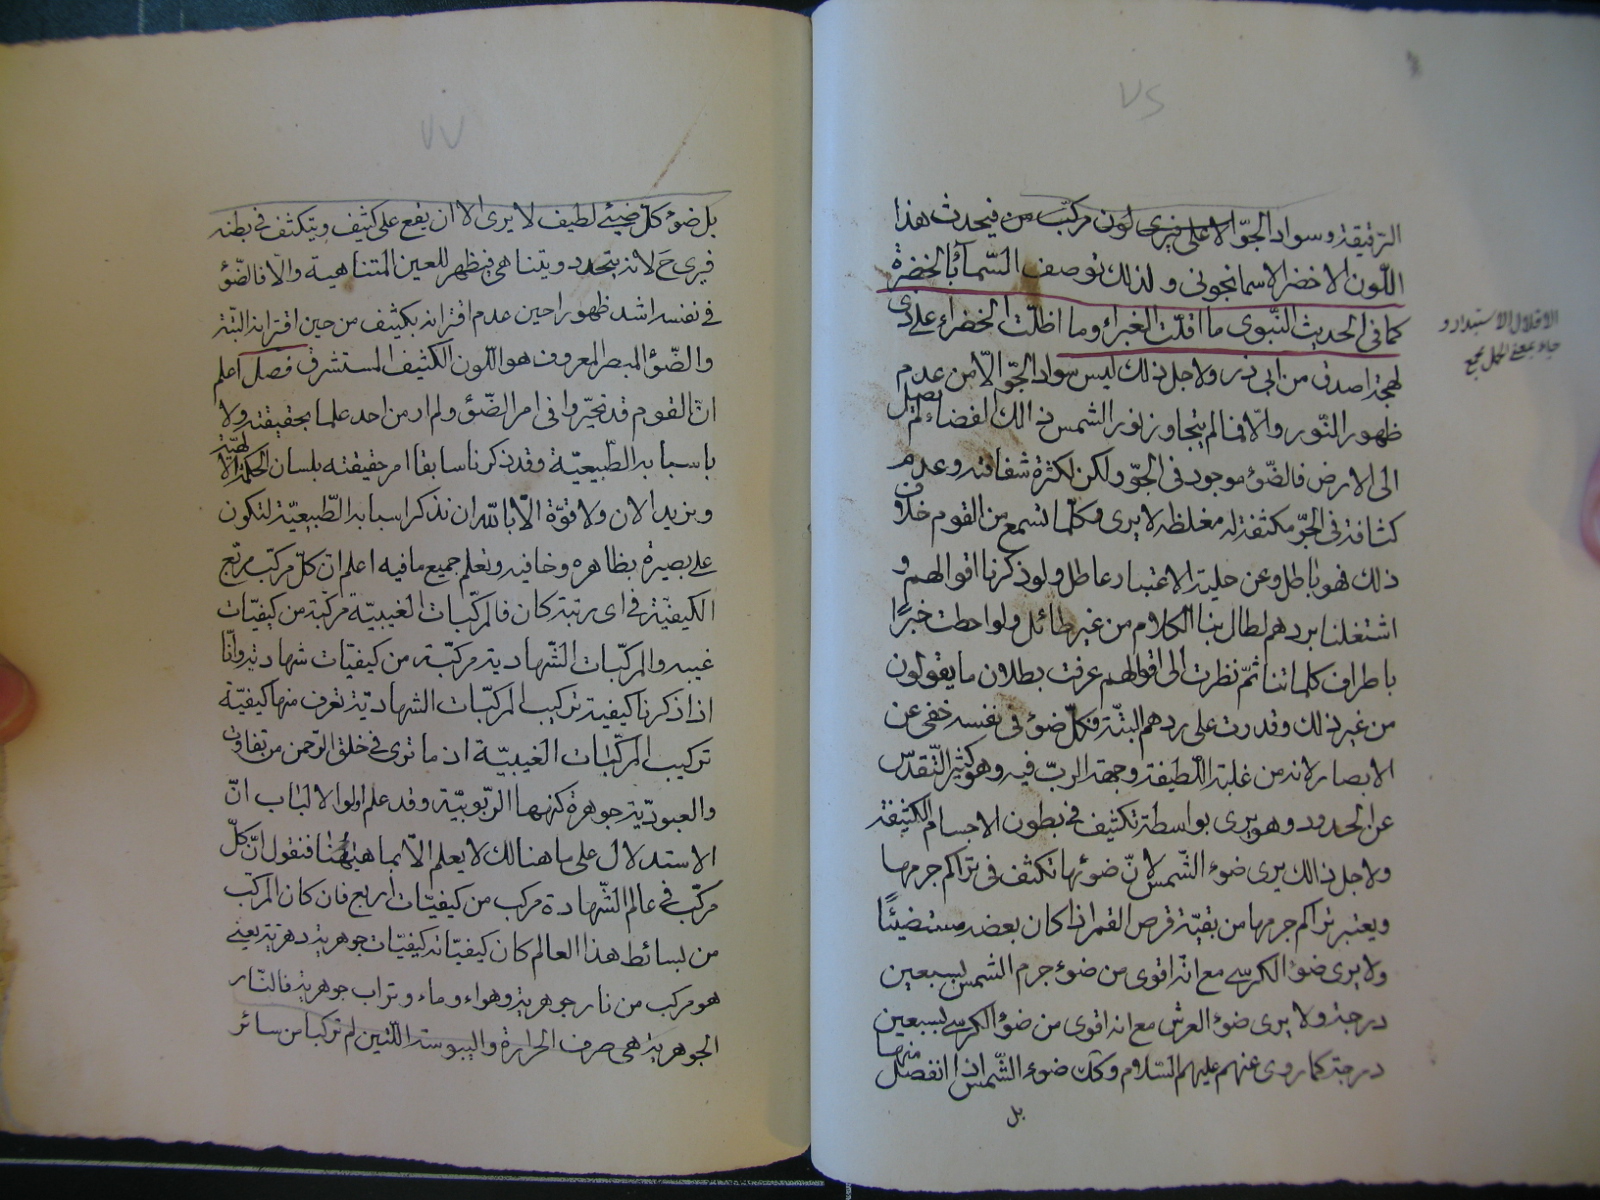 ٧٤
الرقيقة وسواد الجوّ الاعلى فيرى لون مركّب من فيحدث هذا
اللّون الاخضر الاسمانجونى ولذلك توصف السّمآء بالخضرة
كما فى الحديث النّبوى ما اقلّت الغبراء وما اظلّت الخضراء على ذى
لهجة اصدق من ابى ذر ولاجل ذلك ليس سواد الجوّ الّا من عدم
ظهور النّور والّا فما لم يتجاوز نور الشمس ذلك الفضاء لم يصل
الى الارض فالضّوء موجود فى الجوّ ولكن لكثرة شفافته وعدم
كثافة فى الجوّ مكثفة له مغلظه لا يرى وكلّما تسمع من القوم خلاف
ذلك فهو باطل وعن حلية الاعتبار عاطل ولو ذكرنا اقوالهم و
اشتغلنا بردهم لطال بنا الكلام من غير طائل ولو احطت خبرًا
باطراف كلماتنا ثمّ نظرت الى اقوالهم عرفت بطلان ما يقولون
من غير ذلك وقدرت على ردهم البتّة فكلّ ضوء فى نفسه خفى عن
الابصار لانه من غلبة اللّطيفة وجهة الربّ فيه وهو كثير التّقدّس
عن الحدود وهو يرى بواسطة تكثيف فى بطون الاجسام الكثيفة
ولاجل ذلك يرى ضوء الشّمس لانّ ضوئها تكثف فى تراكم جرمها
ويعتبر تراكم جرمها من بقيّة قرص القمر اذا كان بعضه مستضيئًا
ولا يرى ضوء الكرسى مع انّه اقوى من ضوء جرم الشمس بسبعين
درجة ولا يرى ضوء العرش مع انه اقوى من ضوء الكرسى بسبعين
درجة كما روى عنهم عليهم السّلام وكك ضوء الشّمس اذا انفصل منها
بل
الاقلال الاستبداد و
جاء بمعنى الحمل مجمع
٧٧
بل ضوء كلّ ضيئ لطيف لا يرى الا ان يقع على كثيف ويتكثف فى بطنه
فيرى ح لانه يتحدد ويتناهى فيظهر للعين المتناهية والّا فالضّوء
فى نفسه اشد ظهورا حين عدم اقترانه بكثيف من حين اقترانه البتّة
والضّوء المبصر المعروف هو اللّون الكثيف المستشرق فصل اعلم
انّ القوم قد تحيّروا فى امر الضّوء ولم ار من احد علما بحقيقته ولا
باسبابه الطّبيعيّة وقد ذكرنا سابقا امر حقيقته بلسان الحكمة الالهيّة
ونريد الان ولا قوّة الّا بالله ان نذكر اسبابه الطّبيعيّة لتكون
على بصيرة بظاهره وخافيه وتعلم جميع ما فيه اعلم انّ كلّ مركب مربّع
الكيفيّة فى اى رتبة كان فالمركّبات الغيبيّة مركبة من كيفيّات
غيبيه والمركّبات الشّهادية مركّبة من كيفيّات شهاديّة وانّا
اذا ذكرنا كيفية تركيب المركّبات الشهاديّة تعرف منها كيفيّة
تركيب المركّبات الغيبيّة اذ ما ترى فى خلق الرّحمن من تفاوت
والعبوديّة جوهرة كنهها الرّبوبيّة وقد علم اولوا الالباب انّ
الاستدلال على ما هنالك لا يعلم الّا بما هيهنا فنقول انّ كلّ
مركّب فى عالم الشّهادة مركب من كيفيّات اربع فان كان المركب
من بسائط هذا العالم كان كيفيّاته كيفيّات جوهرية دهرية يعنى
هو مركب من نار جوهرية وهواء وماء وتراب جوهرية فالنّار
الجوهرية هى صرف الحرارة واليبوسة اللّتين لم تركبا من سائر